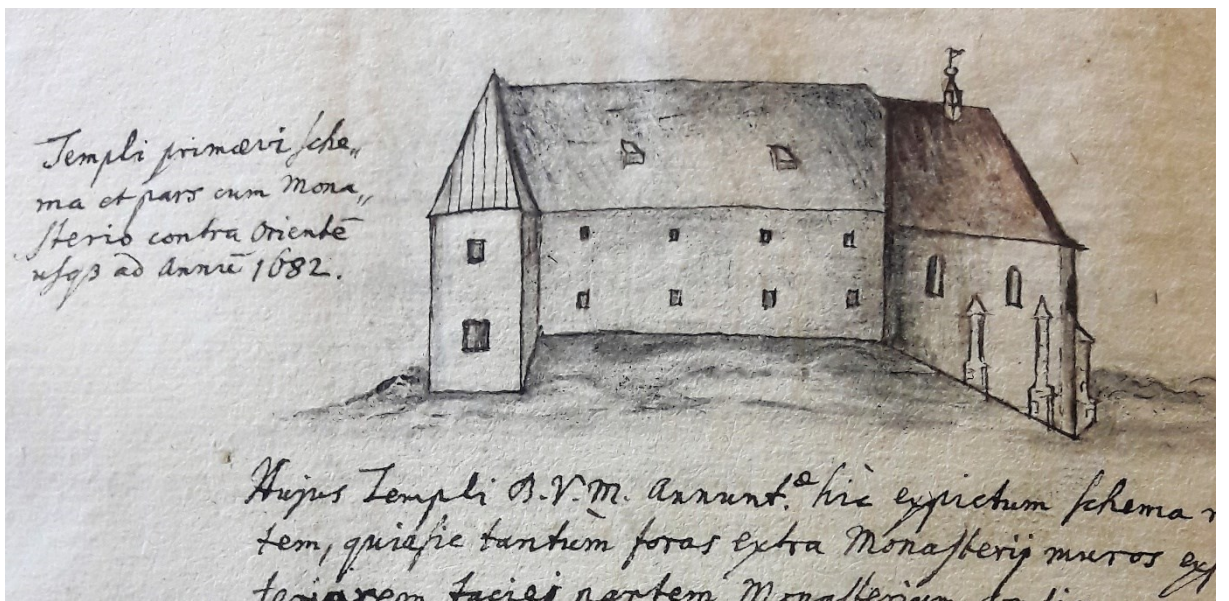 Templi primævi sche„
ma et pars cum Mona„
sterio contra Orientē
usqꝫ ad Annū 1682.
Hujus Templi B.V.M. Annunt.æ hic expictum schema
tem, quia sic tantùm foras extra Monasterij muros
partem Monasterium